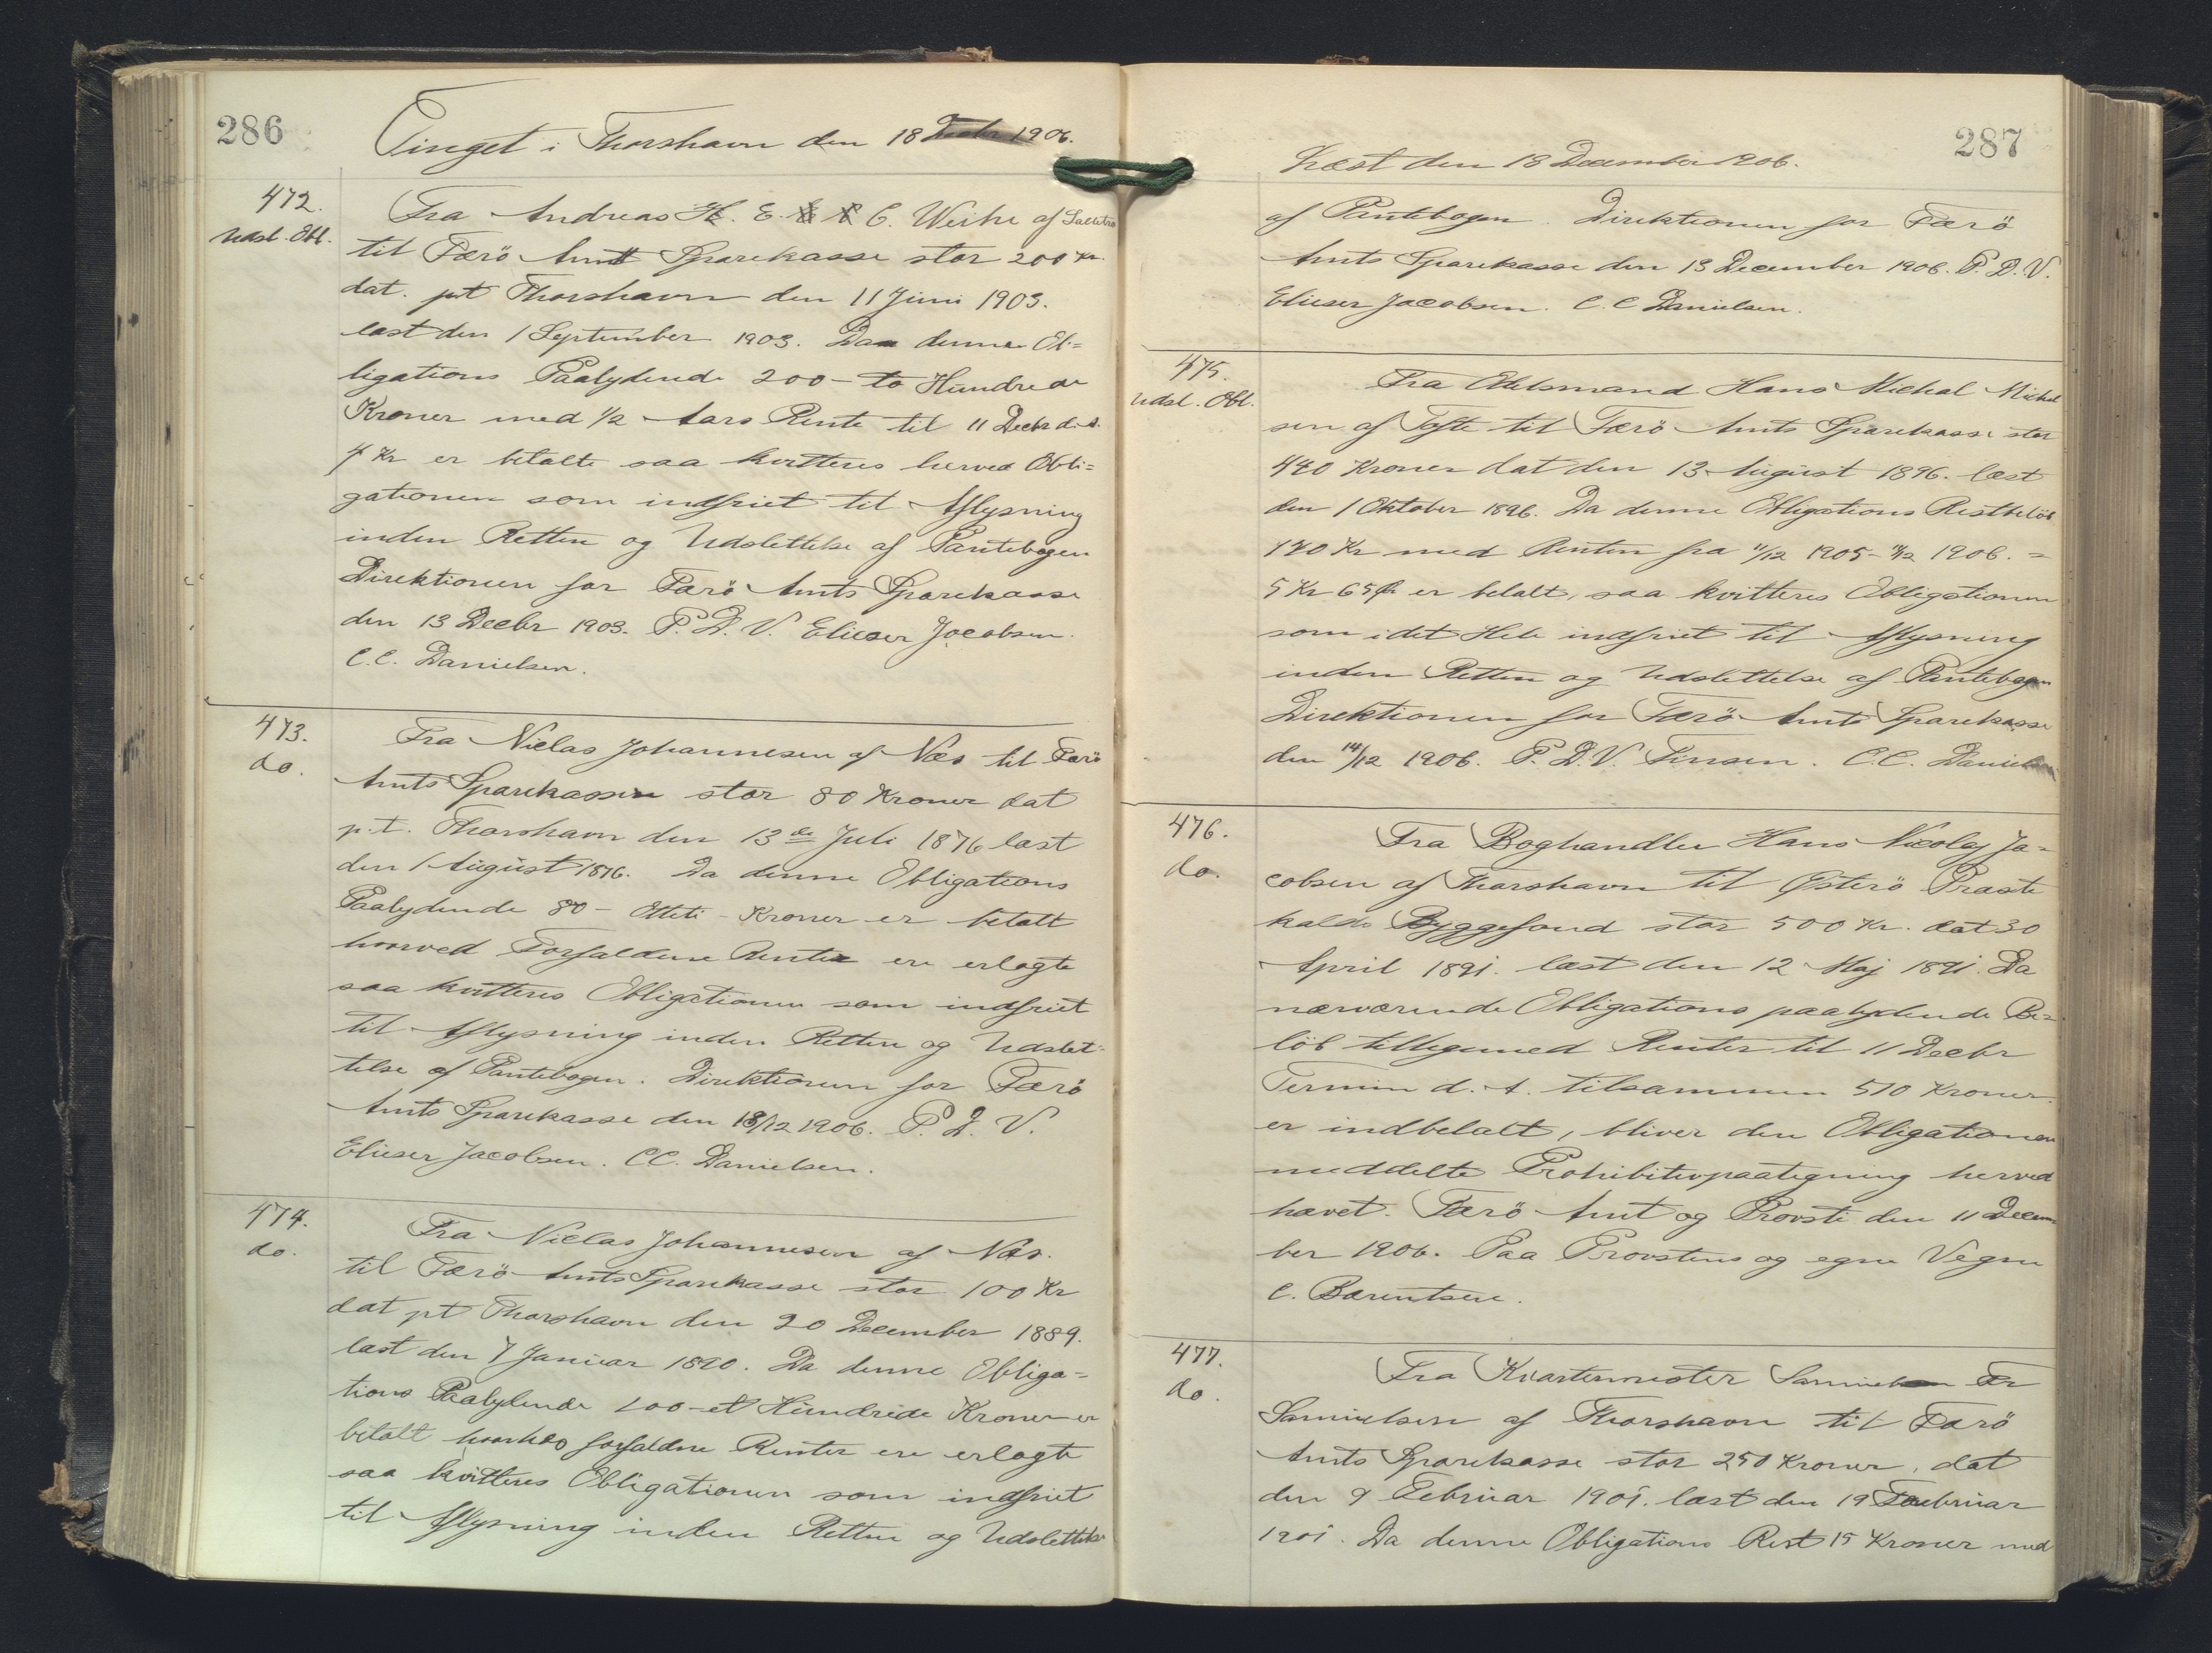 286
Tinget i Thorshavn den 18 Decbr 1906.
472.
Udsl. Obl.
Fra Andreas H. E. C. Weihe af
til Færö Amts Sparekasse stor 200 Kr
dat. pt Thorshavn den 11 Juni 1903.
læst den 1 September 1903. Da denne Ob=
ligations Paalydende 200 - to Hundrede
Kroner med 1/2 Aars Rente til 11 Decbr d. A.
4 Kr er betalte saa kvitteres herved Obli=
gationen som indfriet til Aflysning
inden Retten og Udslettelse af Pantebogen
Direktionen for Færö Amts Sparekasse
den 13 Decbr 1903. P. D. V. Elieser Jacobsen.
C.C. Danielsen.
473.
do.
Fra Niclas Johannesen af Næs til Færö
Amts Sparekasse stor 80 Kroner dat
p.t. Thorshavn den 13de Juli 1876 læst
den 1 August 1876. Da denne Obligations
Paalydende 80 - Otteti - Kroner er betalt
hvorved Forfaldne Renter ere erlagte
saa kvitteres Obligationen som indfriet
til Aflysning inden Retten og Udslet=
telse af Pantebogen. Direktionen for Færö
Amts Sparekasse den 13/12 1906. P. D. V.
Elieser Jacobsen. CC. Danielsen.
474.
do.
Fra Niclas Johannesen af Næs.
til Færö Amts Sparekasse stor 100 Kr
dat pt Thorshavn den 20 December 1889.
læst den 7 Januar 1890. Da denne Obliga=
tions Paalydende 100 - et Hundrede Kroner er
betalt forfaldne Renter ere erlagte
saa kvitteres Obligationen som indfriet
til Aflysning inden Retten og Udslettelse
287
Læst den 18 December 1906.
af Pantebogen. Direktionen for Færö
Amts Sparekasse den 13 December 1906. P. D. V.
Elieser Jacobsen. C. C Danielsen.
475.
Udsl. Obl.
Fra Odelsmand Hans Michal Michal
sen af Tofte til Færö Amts Sparekasse stor
440 Kroner dat den 13 August 1896. læst
den 1 Oktober 1896. Da denne Obligations Restbelöb
140 Kr med Renten fra 11/12 1905 - 11/12 1906. =
5 Kr 65 er betalt, saa kvitteres Obligationen
som i det Hele indfriet til Aflysning
inden Retten og Udslettelse af Pantebogen
Direktionen for Færö Amts Sparekasse
den 14/12 1906. P. D. V. Finsen. C.C. Danielsen
476.
do.
Fra Boghandler Hans Nicolaj Ja=
cobsen af Thorshavn til Österö Præste
kalds Byggefond stor 500 Kr. dat 30
April 1891. læst den 12 Maj 1891. Da
nærværende Obligations paalydende Be=
löb tilligemed Renter til 11 Decbr
Termin d. A. tilsammen 510 Kroner
er indbetalt, bliver den Obligationen
meddelte Prohibitivpaategning herved
hævet. Færö Amt og Provsti den 11 Decem
ber 1906. Paa Provstens og egne Vegne
C. Bærentsen.
477.
do.
Fra Kvartermester Fr
Samuelsen af Thorshavn til Færö
Amts Sparekasse stor 250 Kroner, dat
den 9 Februar 1901. læst den 19 Februar
1901. Da denne Obligations Rest 15 Kroner med